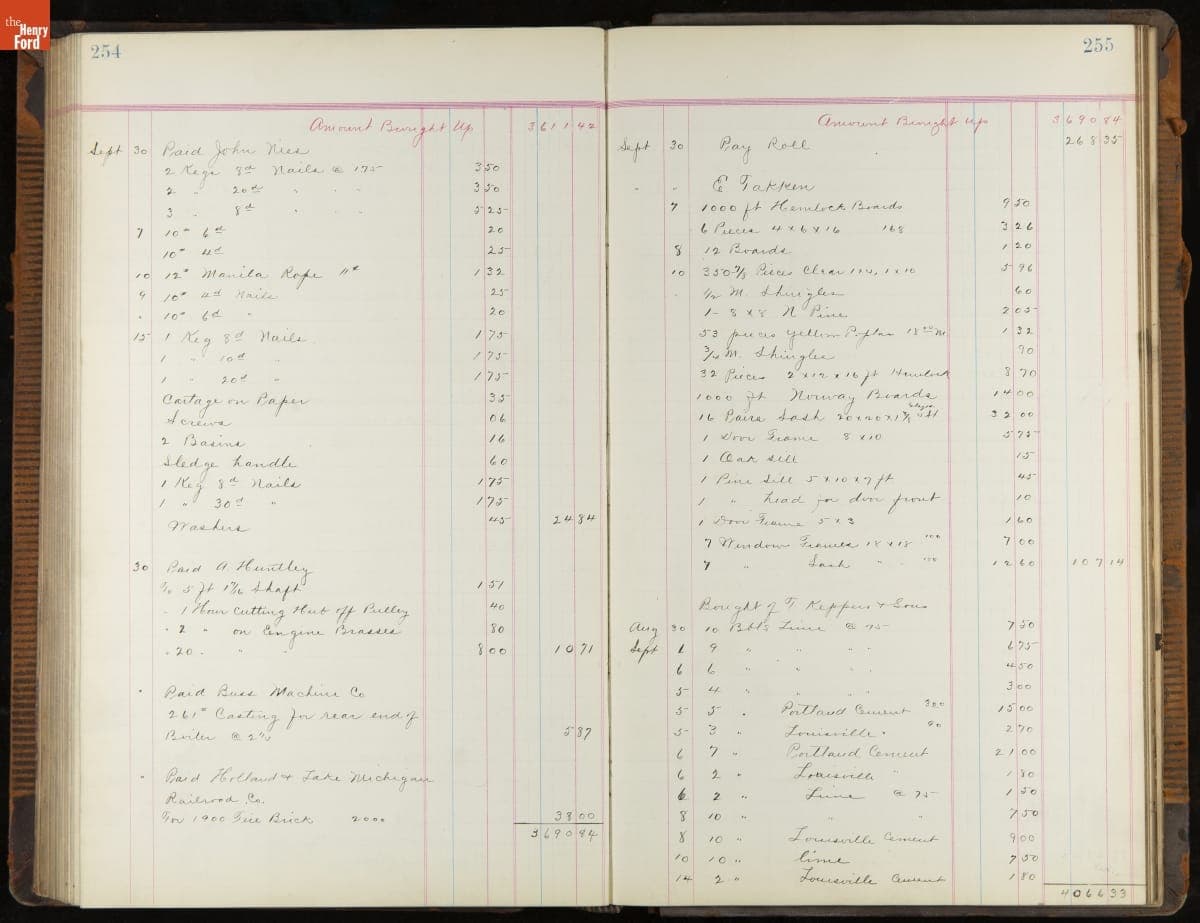 the Henry Ford
254
Amount Brought Up 3611 42
Sept 30 Paid John Nies
2 Kegs 8d Nails @ 175 3 50
2 " 20d " " " 3 50
3 " 8d " " " 5 25
7 10# 6d 20
10# 4d 25
10 12# Manila Rope 11¢ 1 32
9 10# 4d Nails 25
" 10# 6d " 20
15 1 Keg 8d Nails 1 75
1 " 10d " 1 75
1 " 20d " 1 75
Cartage on Paper 35
Screws 06
2 Basins 16
Sledge handle 60
1 Keg 8d Nails 1 75
1 " 30d " 1 75
Washers 45 24 84
30 Paid A Huntley
To 5 ft 1 7/16 Shaft 1 51
" 1 Hour Cutting Hub off Pulley 40
" 2 " on Engine Brasses 80
" 20 " " " 8 00 10 71
" Paid Buss Machine Co
261# Casting for rear end of
Boiler @ 2 1/4 5 87
" Paid Holland & Lake Michigan
Railroad Co.
For 1900 Fire Brick 2000 38 00
3690 84
255
Amount Brought Up 3690 84
Sept 30 Pay Roll 268 35
" " E Takken
7 1000 ft Hemlock Boards 9 50
6 Pieces 4 x 6 x 16 168 3 26
8 12 Boards 1 20
10 350 7/8 Pieces Clear 1x4, 1x10 5 96
" 1/2 M. Shingles 60
1 - 8 x 8 N Pine 2 05
53 pieces Yellow Poplar 18 00 M 1 32
3/4 M. Shingles 90
32 Pieces 2 x 12 x 16 ft Hemlock 8 70
1000 ft Norway Boards 14 00
16 Pairs Sash 20x20x1 3/8 32 00
1 Door Frame 8 x 10 5 75
1 Oak Sill 15
1 Pine Sill 5 x 10 x 7 ft 45
1 " head for door front 10
1 Door Frame 5 x 3 1 60
7 Window Frames 18 x 18 100 7 00
7 " Sash " " 12 60 107 14
Bought of T Keppers & Sons
Aug 30 10 Bbls Lime @ 75 7 50
Sept 1 9 " " " " 6 75
6 6 " " " " 4 50
5 4 " " " " 3 00
5 5 " Portland Cement 300 15 00
5 3 " Louisville " 90 2 70
6 7 " Portland Cement 21 00
6 2 " Louisville " 1 80
6 2 " Lime @ 75 1 50
8 10 " " " 7 50
8 10 " Louisville Cement 9 00
10 10 " lime 7 50
14 2 " Louisville Cement 1 80
4066 33